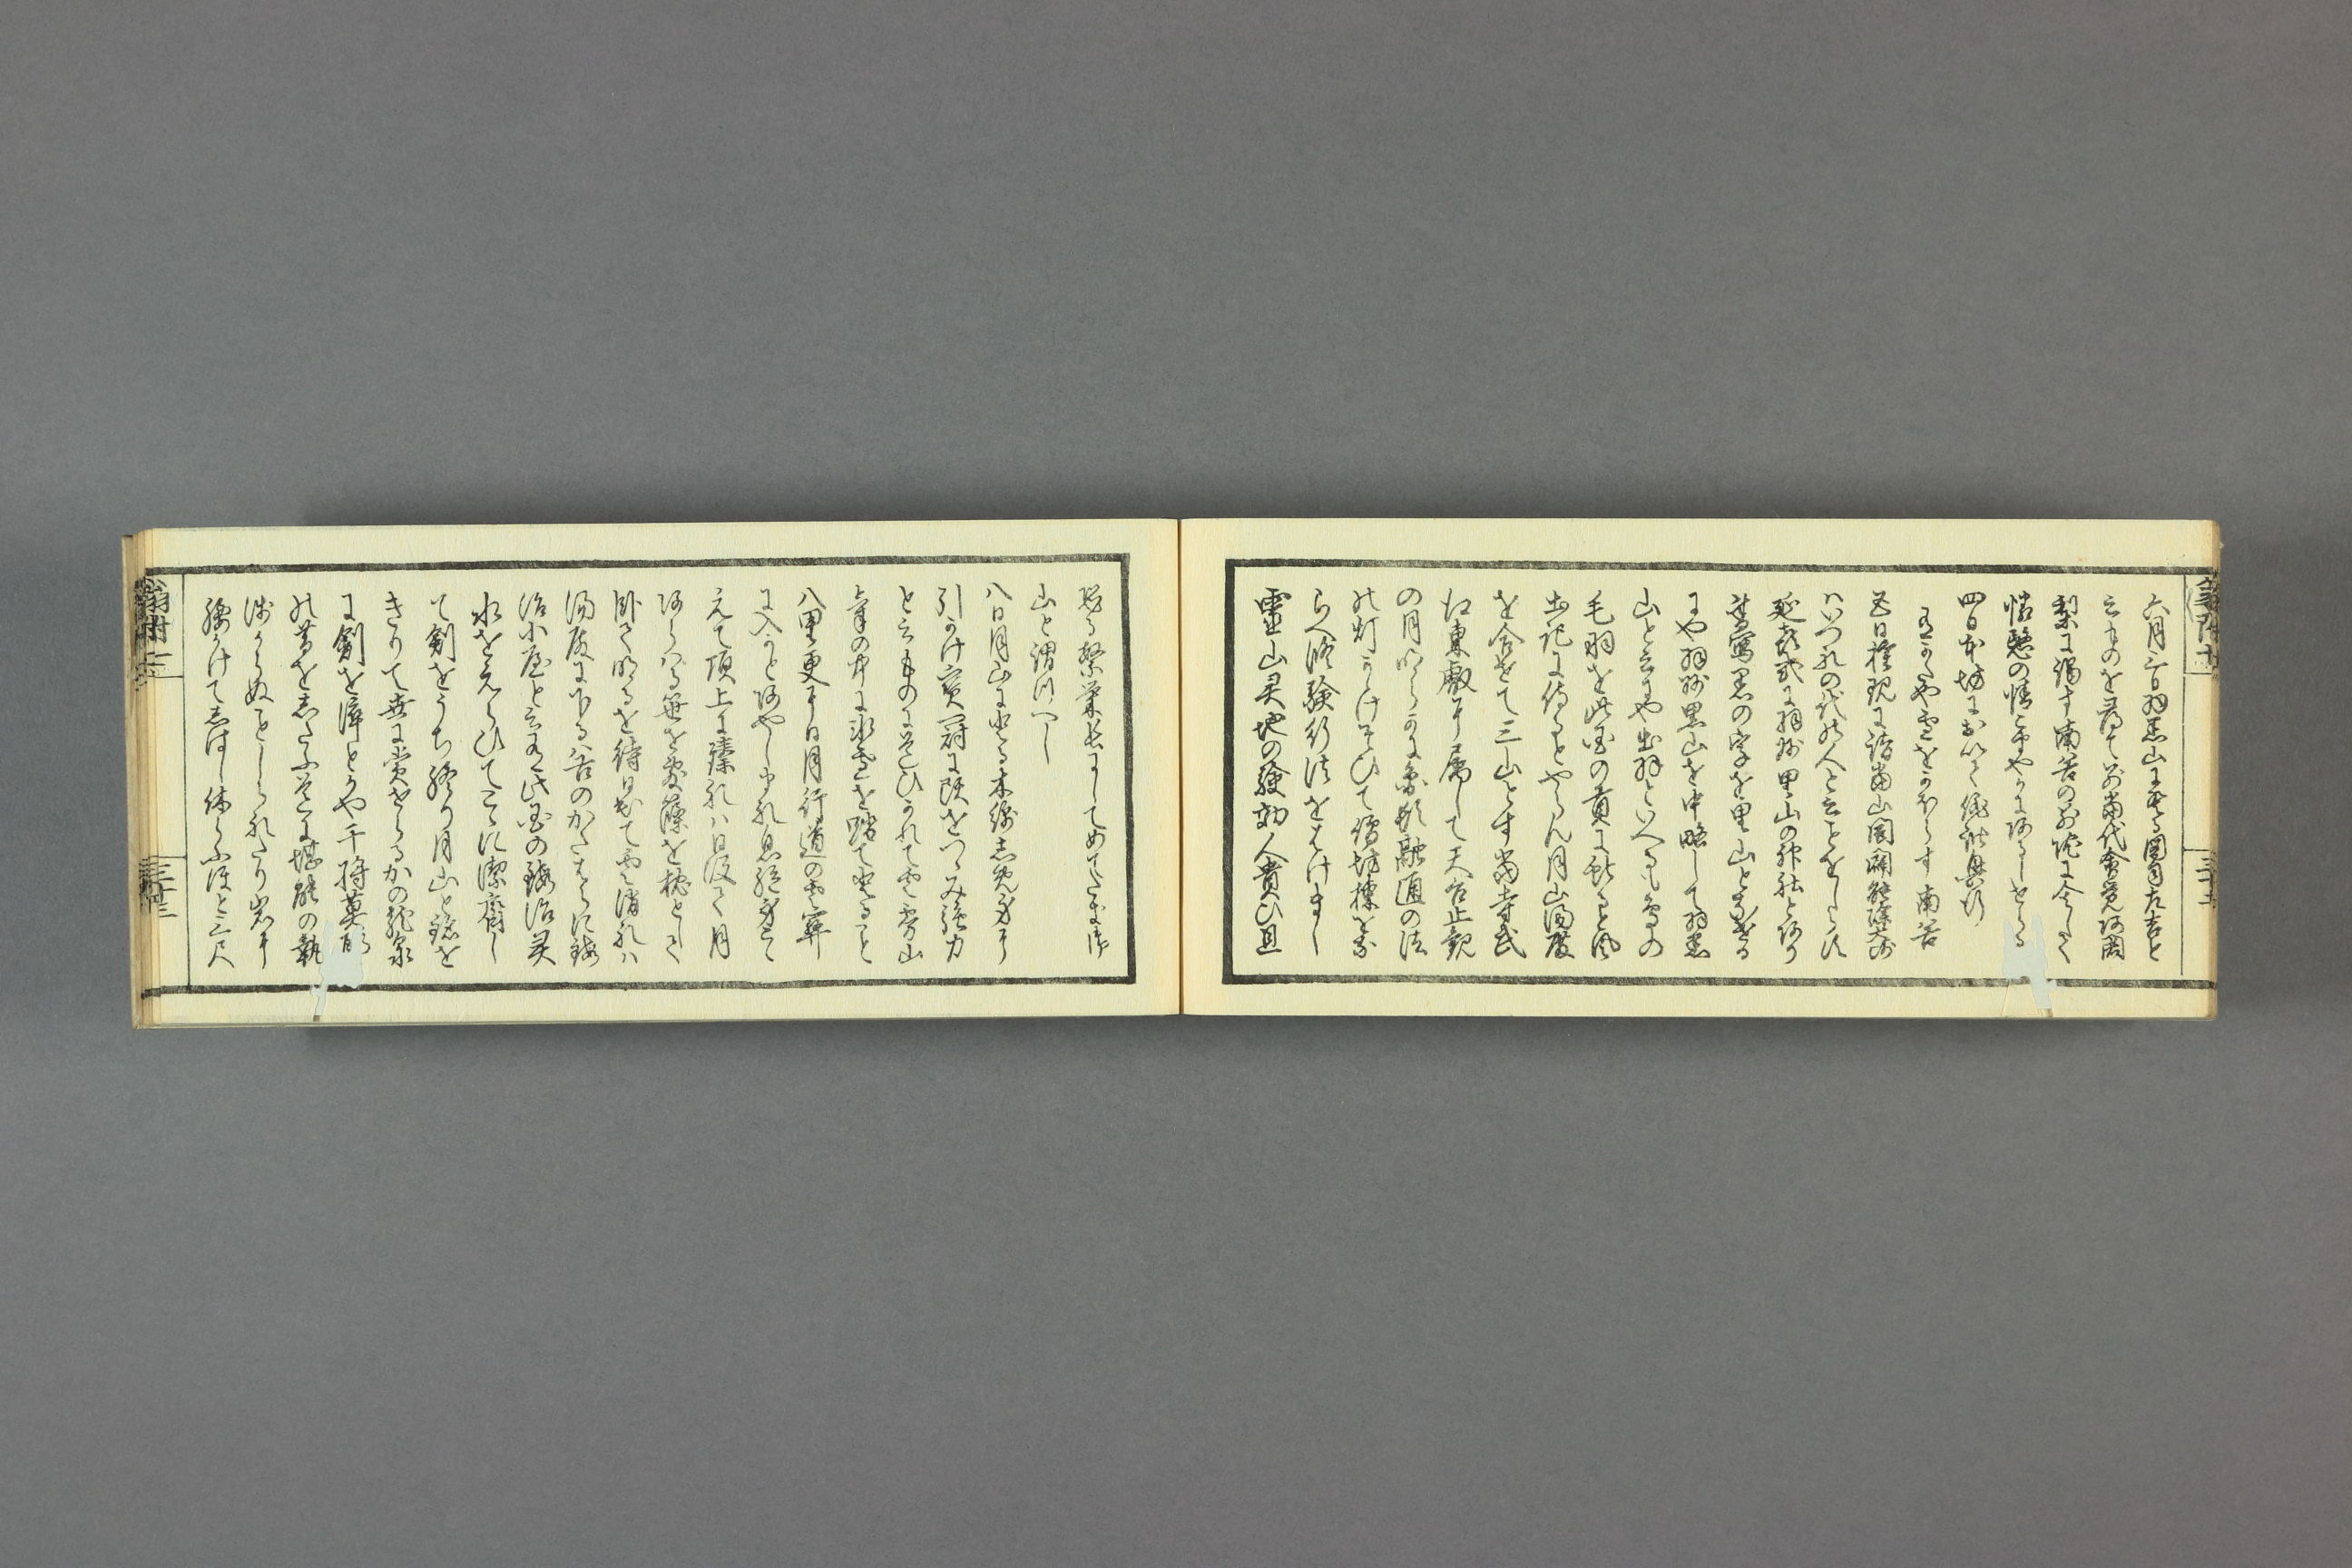 六月三日羽黒山に登る図司左吉と
云ものを尋て別當代會覚阿闍
梨に謁す南谷の別院に舎して
憐愍の情こまやかにあるしせらる
四日本坊において俳諧興行
有かたや雪をかほらす南谷
五日権現に詣當山開闢能除大師
はいつれの代の人と云ことをしらす
延喜式に羽州里山の神社とあり
書写黒の字を里山となせる
にや羽州黒山を中略して羽黒
山と云にや出羽といへるも鳥の
毛羽を此国の貢に献ると風
土記に侍るとやらん月山湯殿
を合せて三山とす當寺武
江東叡に属して天台止観
の月明らかに円頓融通の法
の灯かゝけそひて僧坊棟をな
らへ修験行法をはけまし
霊山霊地の験効人貴ひ且
恐る繁栄長にしてめてたき御
山と謂つへし
八日月山に登る木綿しめ身に
引かけ宝冠に頭をつゝみ強力
と云ものにみちひかれて雲霧山
気の中に氷雪を踏て登ること
八里更に日月行道の雲関
に入かとあやしまれ息絶身こ
えて頂上に臻れは日没て月
あらはる笹を敷篠を枕として
臥て明るを待日出て雲消れは
湯殿に下る谷のかたはらに鍛
冶小屋と云有此国の鍛冶霊
水をえらひてこゝに潔斎し
て剣をうち終り月山と銘を
きりて世に賞せらるかの龍泉
に剣を淬とかや干将莫耶
の昔をしたふ道に堪能の執
浅からぬことしられたり岩に
腰かけてしはし休らふほと三尺